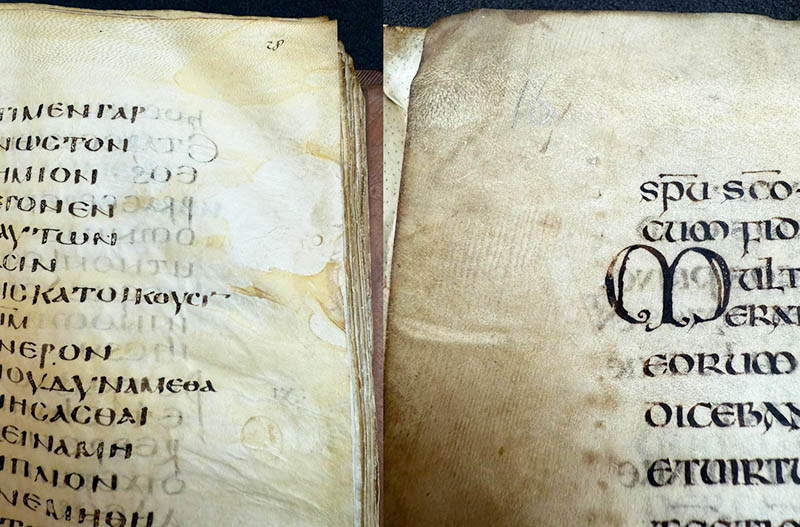 28
ΤΙΜΕΝΓΑΡ
ΝΩϹΤΟΝ
ΗΜΙΟΝ
ΕΓΟΝΕΝ
ΑΥΤΩΝ
ϹΕΙΝ
ΙϹΚΑΤΟΙΚΟΥϹΙ
ΝΕΡΟΝ
ΙΟΥΔΥΝΑΜΕΘΑ
ΝΗϹΑϹΘΑΙ
ΕΙΝΑΜΗ
ΙΠΛΙΟΝ
ΝΕΜΗΘΗ
SP̄U·SC̄O·
CUM FID
MULT
ERAT
EORUM
DICEBAN
ETUIRTU